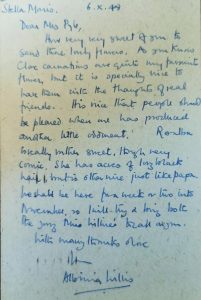 Stella Maris. 6.X.48
Dear Mrs Pye,
How very very sweet of you to
send these lovely flowers. As you know
Clove carnations are quite my favourite
flower, but it is specially nice to
have them with the thoughts of real
friends. It is nice that people should
be pleased when one has produced
another little
locally rather sweet, though very
comic. She has acres of long black
hair, but is otherwise just like papa.
be here for a week or two into
November, so I will try & bring both
the young to call again.
With many thanks